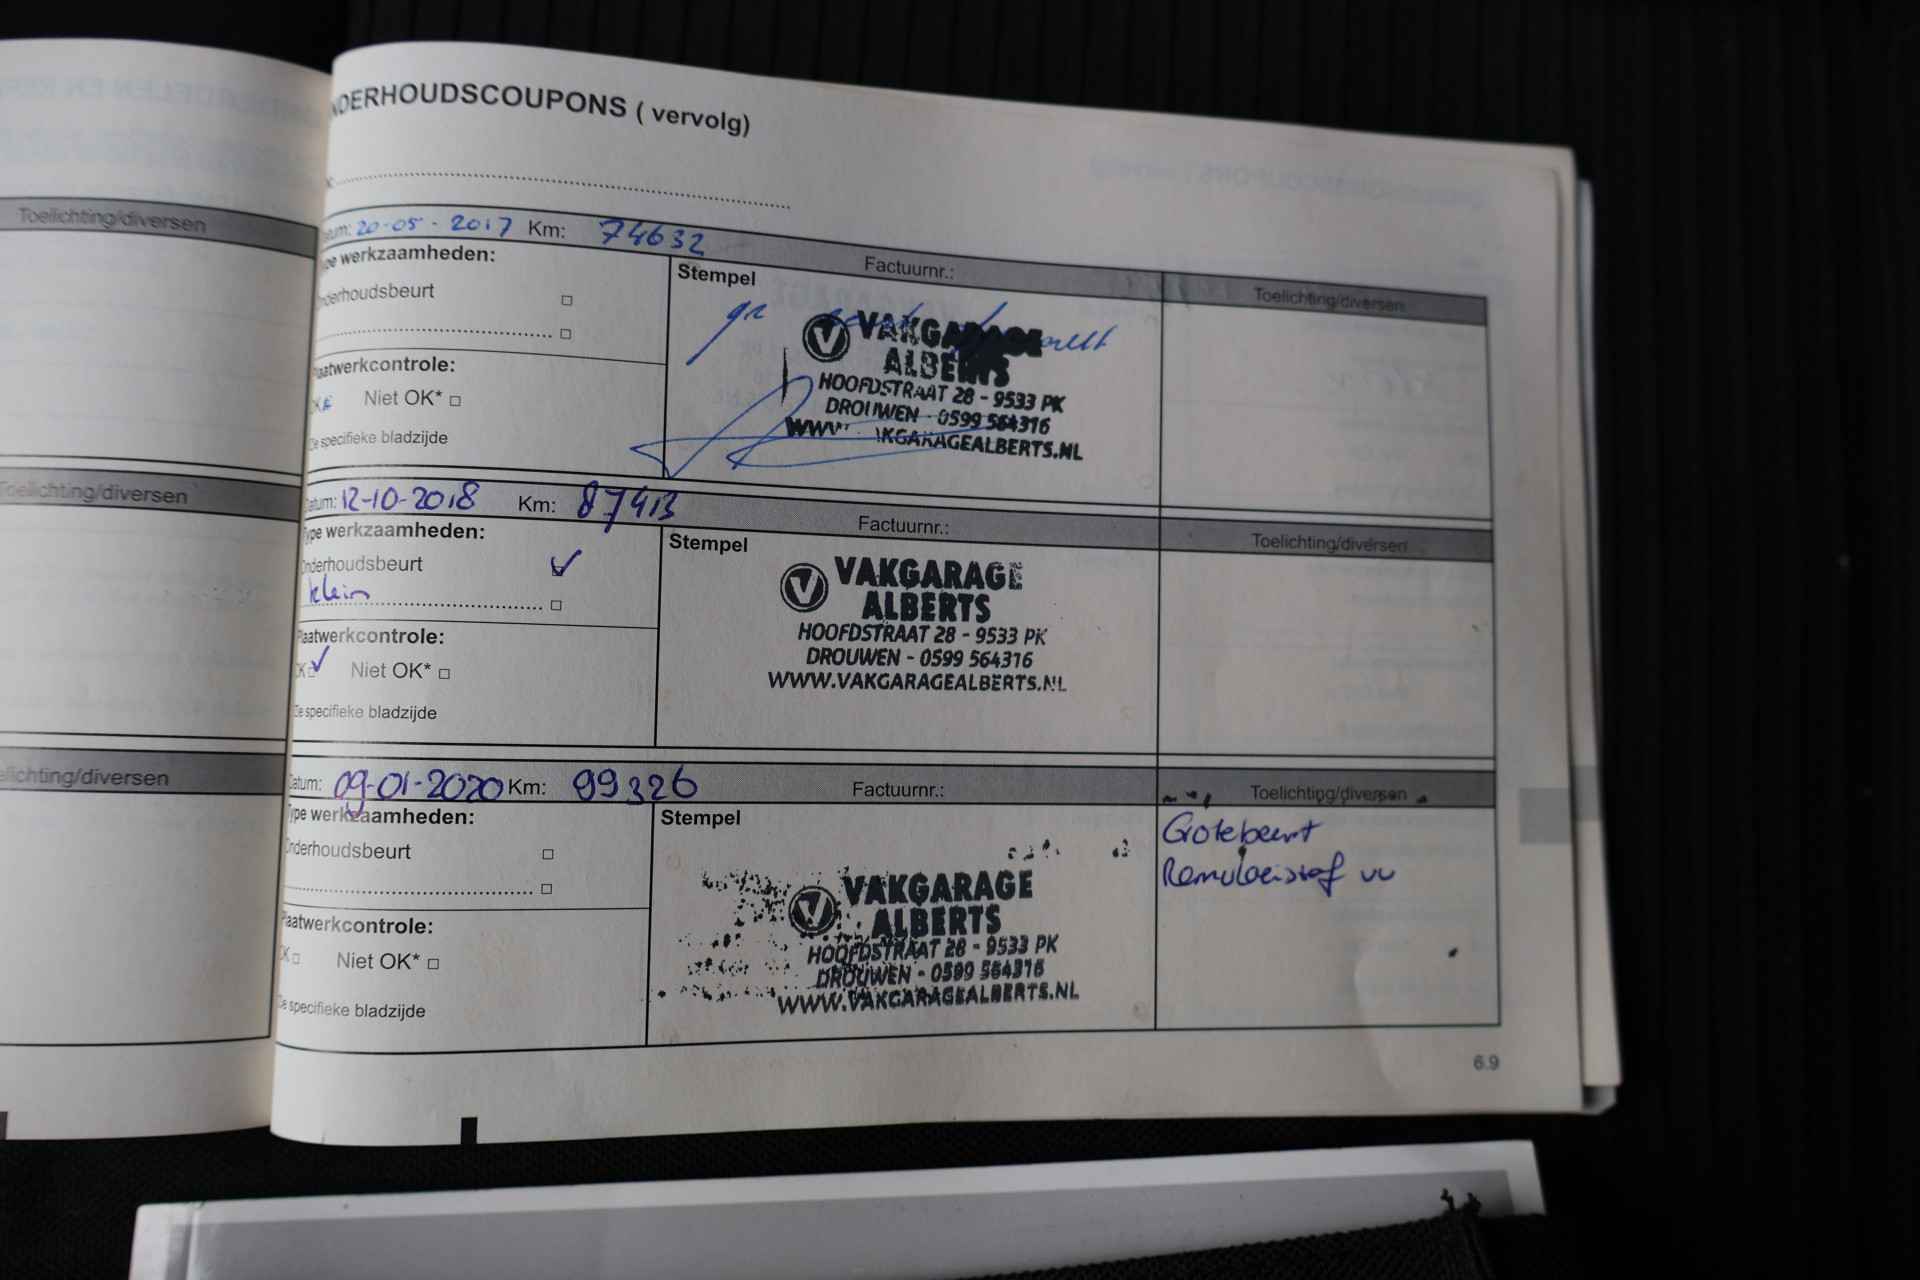 NDERHOUDSCOUPONS ( vervolg)
Toelichting/diversen
Toelichting/diversen
elichting/diversen
atum: 20-05-2017 Km: 74632
Factuurnr.:
Toelichting/diversen
ype werkzaamheden:
nderhoudsbeurt
Stempel
gr
VAKGARAGE
ALBERTS
HOOFDSTRAAT 28 - 9533 PK
DROUWEN - 0599 564316
WWW. AKGARAGEALBERTS.NL
laatwerkcontrole:
OK Niet OK*
Zie specifieke bladzijde
Datum: 12-10-2018 Km: 87413
Factuurnr.:
Toelichting/diversen
Type werkzaamheden:
Onderhoudsbeurt
klein
Stempel
VAKGARAGE
ALBERTS
HOOFDSTRAAT 28 - 9533 PK
DROUWEN - 0599 564316
WWW.VAKGARAGEALBERTS.NL
Plaatwerkcontrole:
OK Niet OK*
Zie specifieke bladzijde
Datum: 09-01-2020 Km: 99326
Factuurnr.:
Toelichting/diversen
Type werkzaamheden:
Onderhoudsbeurt
Stempel
VAKGARAGE
ALBERTS
HOOFDSTRAAT 28 - 9533 PK
DROUWEN - 0599 564316
WWW.VAKGARAGEALBERTS.NL
Grotebeurt
Remvloeistof vv
Plaatwerkcontrole:
OK Niet OK*
Zie specifieke bladzijde
6.9